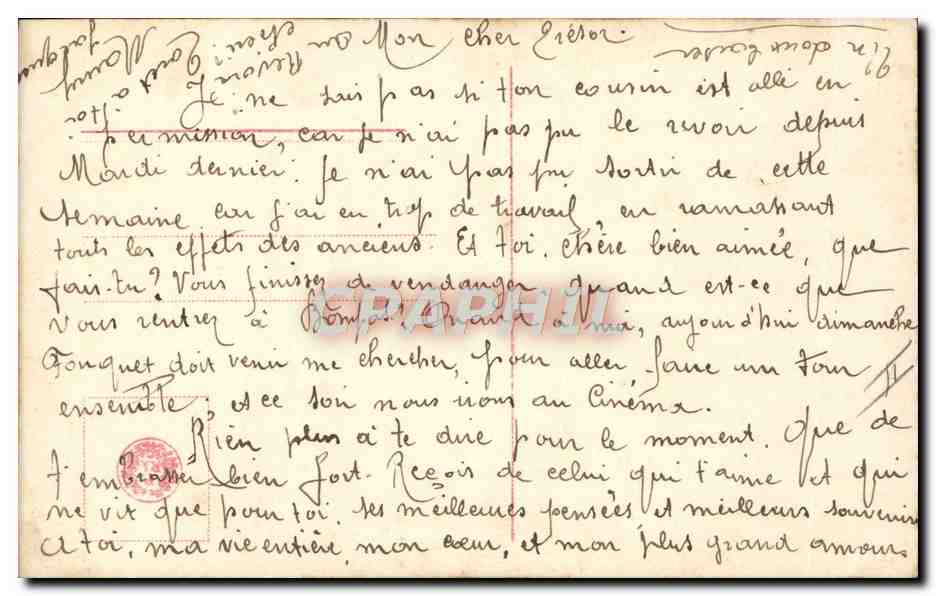 Mon cher Trésor.
Un doux baiser
Je ne sais pas si ton cousin est allé en
permission, car Je n'ai pas pu le revoir depuis
Mardi dernier. Je n'ai pas pu sortir de cette
semaine, car j'ai eu trop de travail, en ramassant
touts les effets des anciens. Et toi, chère bien aimée, que
fais-tu? Vous finissez de vendanger, quand est-ce que
vous rentrez à Bompas? Quand à moi, aujourd'hui dimanche
Fouquet doit venir me chercher, pour aller faire un tour
II
ensemble, et ce soir nous irons au Cinéma.
Rien plus à te dire pour le moment. Que de
t'embrasser bien fort. Reçois de celui qui t'aime et qui
ne vit que pour toi, ses meilleures pensées et meilleurs souvenirs
A toi, ma vie entière, mon cœur, et mon plus grand amour.
Revoir
CPARHII